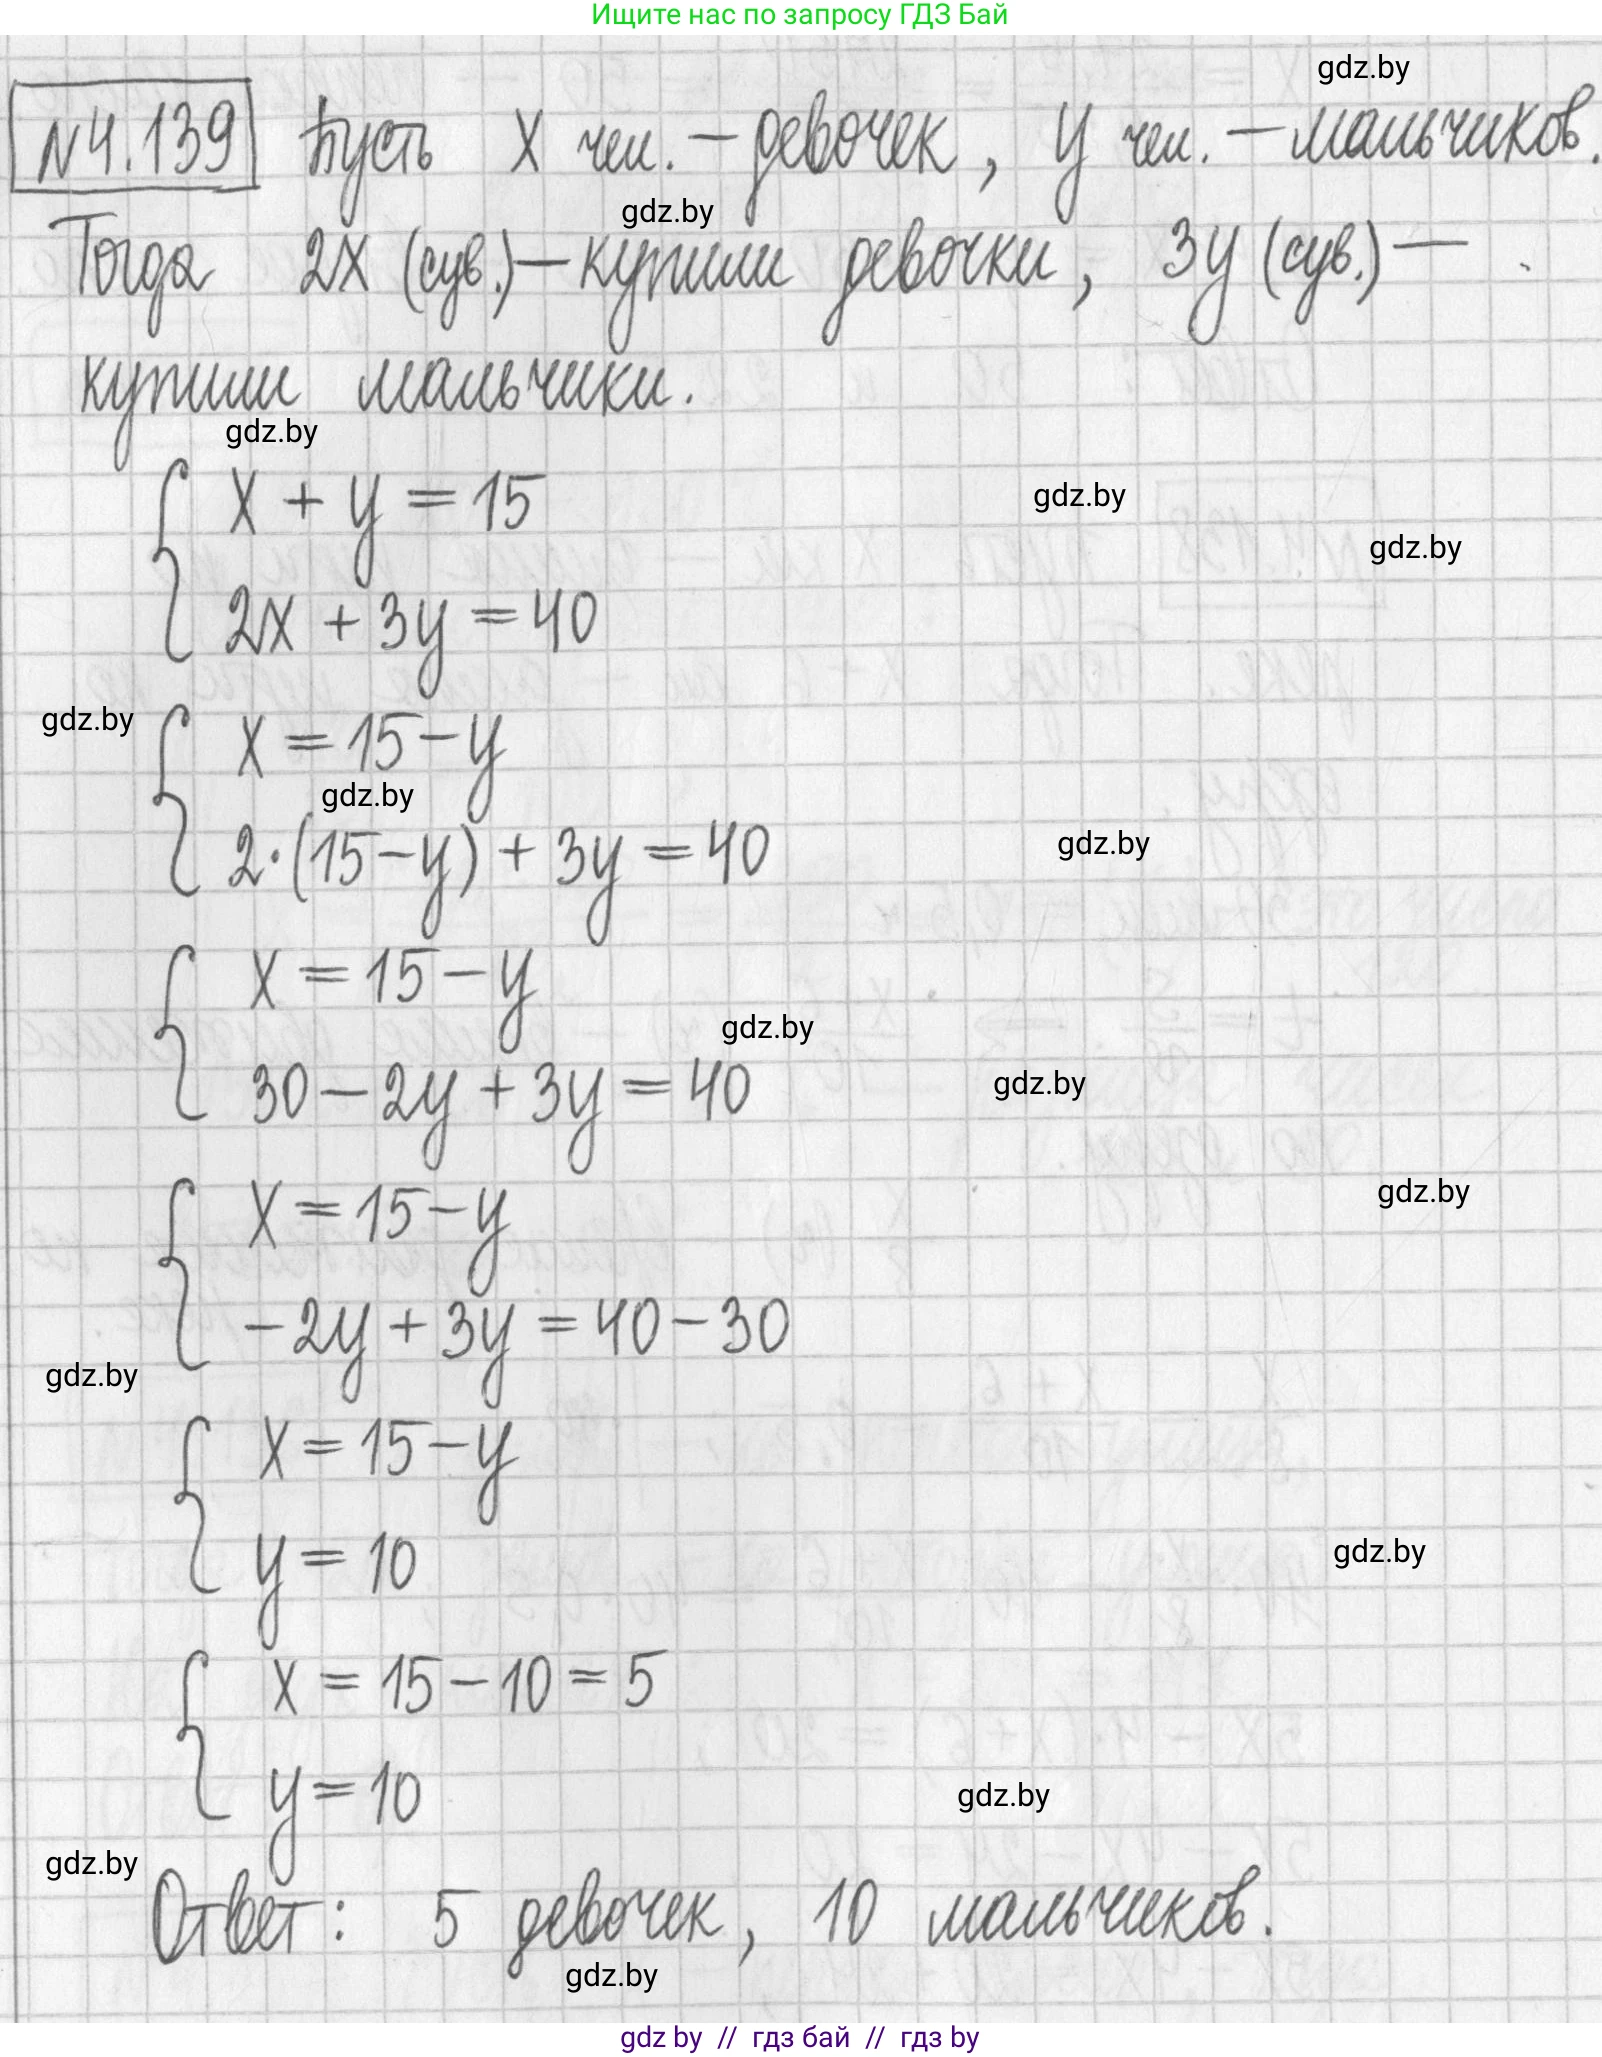 Ищите нас по запросу ГДЗ Бай
gdz.by
N4.139 Пусть x чел. – девочек, y чел. – мальчиков.
gdz.by
Тогда 2x (сув.) – купили девочки, 3y (сув.) –
купили мальчики.
gdz.by
x + y = 15
gdz.by
gdz.by
2x + 3y = 40
gdz.by
x = 15 – y
gdz.by
2·(15 – y) + 3y = 40
gdz.by
x = 15 – y
gdz.by
30 – 2y + 3y = 40
gdz.by
gdz.by
x = 15 – y
– 2y + 3y = 40 – 30
gdz.by
x = 15 – y
gdz.by
y = 10
x = 15 – 10 = 5
y = 10
gdz.by
gdz.by
Ответ: 5 девочек, 10 мальчиков.
gdz.by
gdz by // гдз бай // гдз by